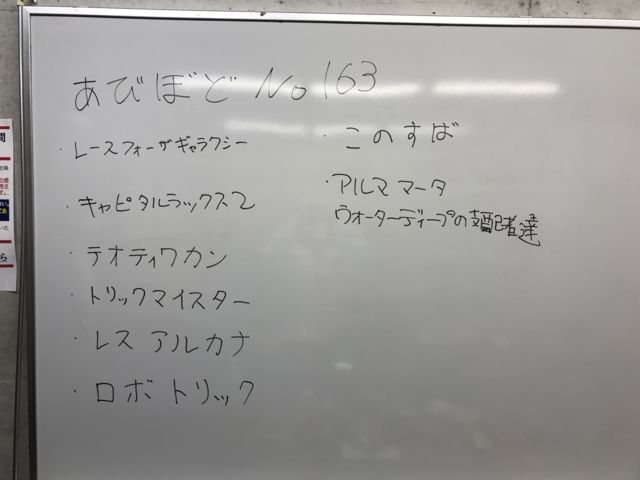 あびぼど No 163
・レースフォーザギャラクシー
・キャピタルラックス2
・テオティワカン
・トリックマイスター
・レス アルカナ
・ロボトリック
・このすば
・アルママータ
ウォーターディープの支配者達